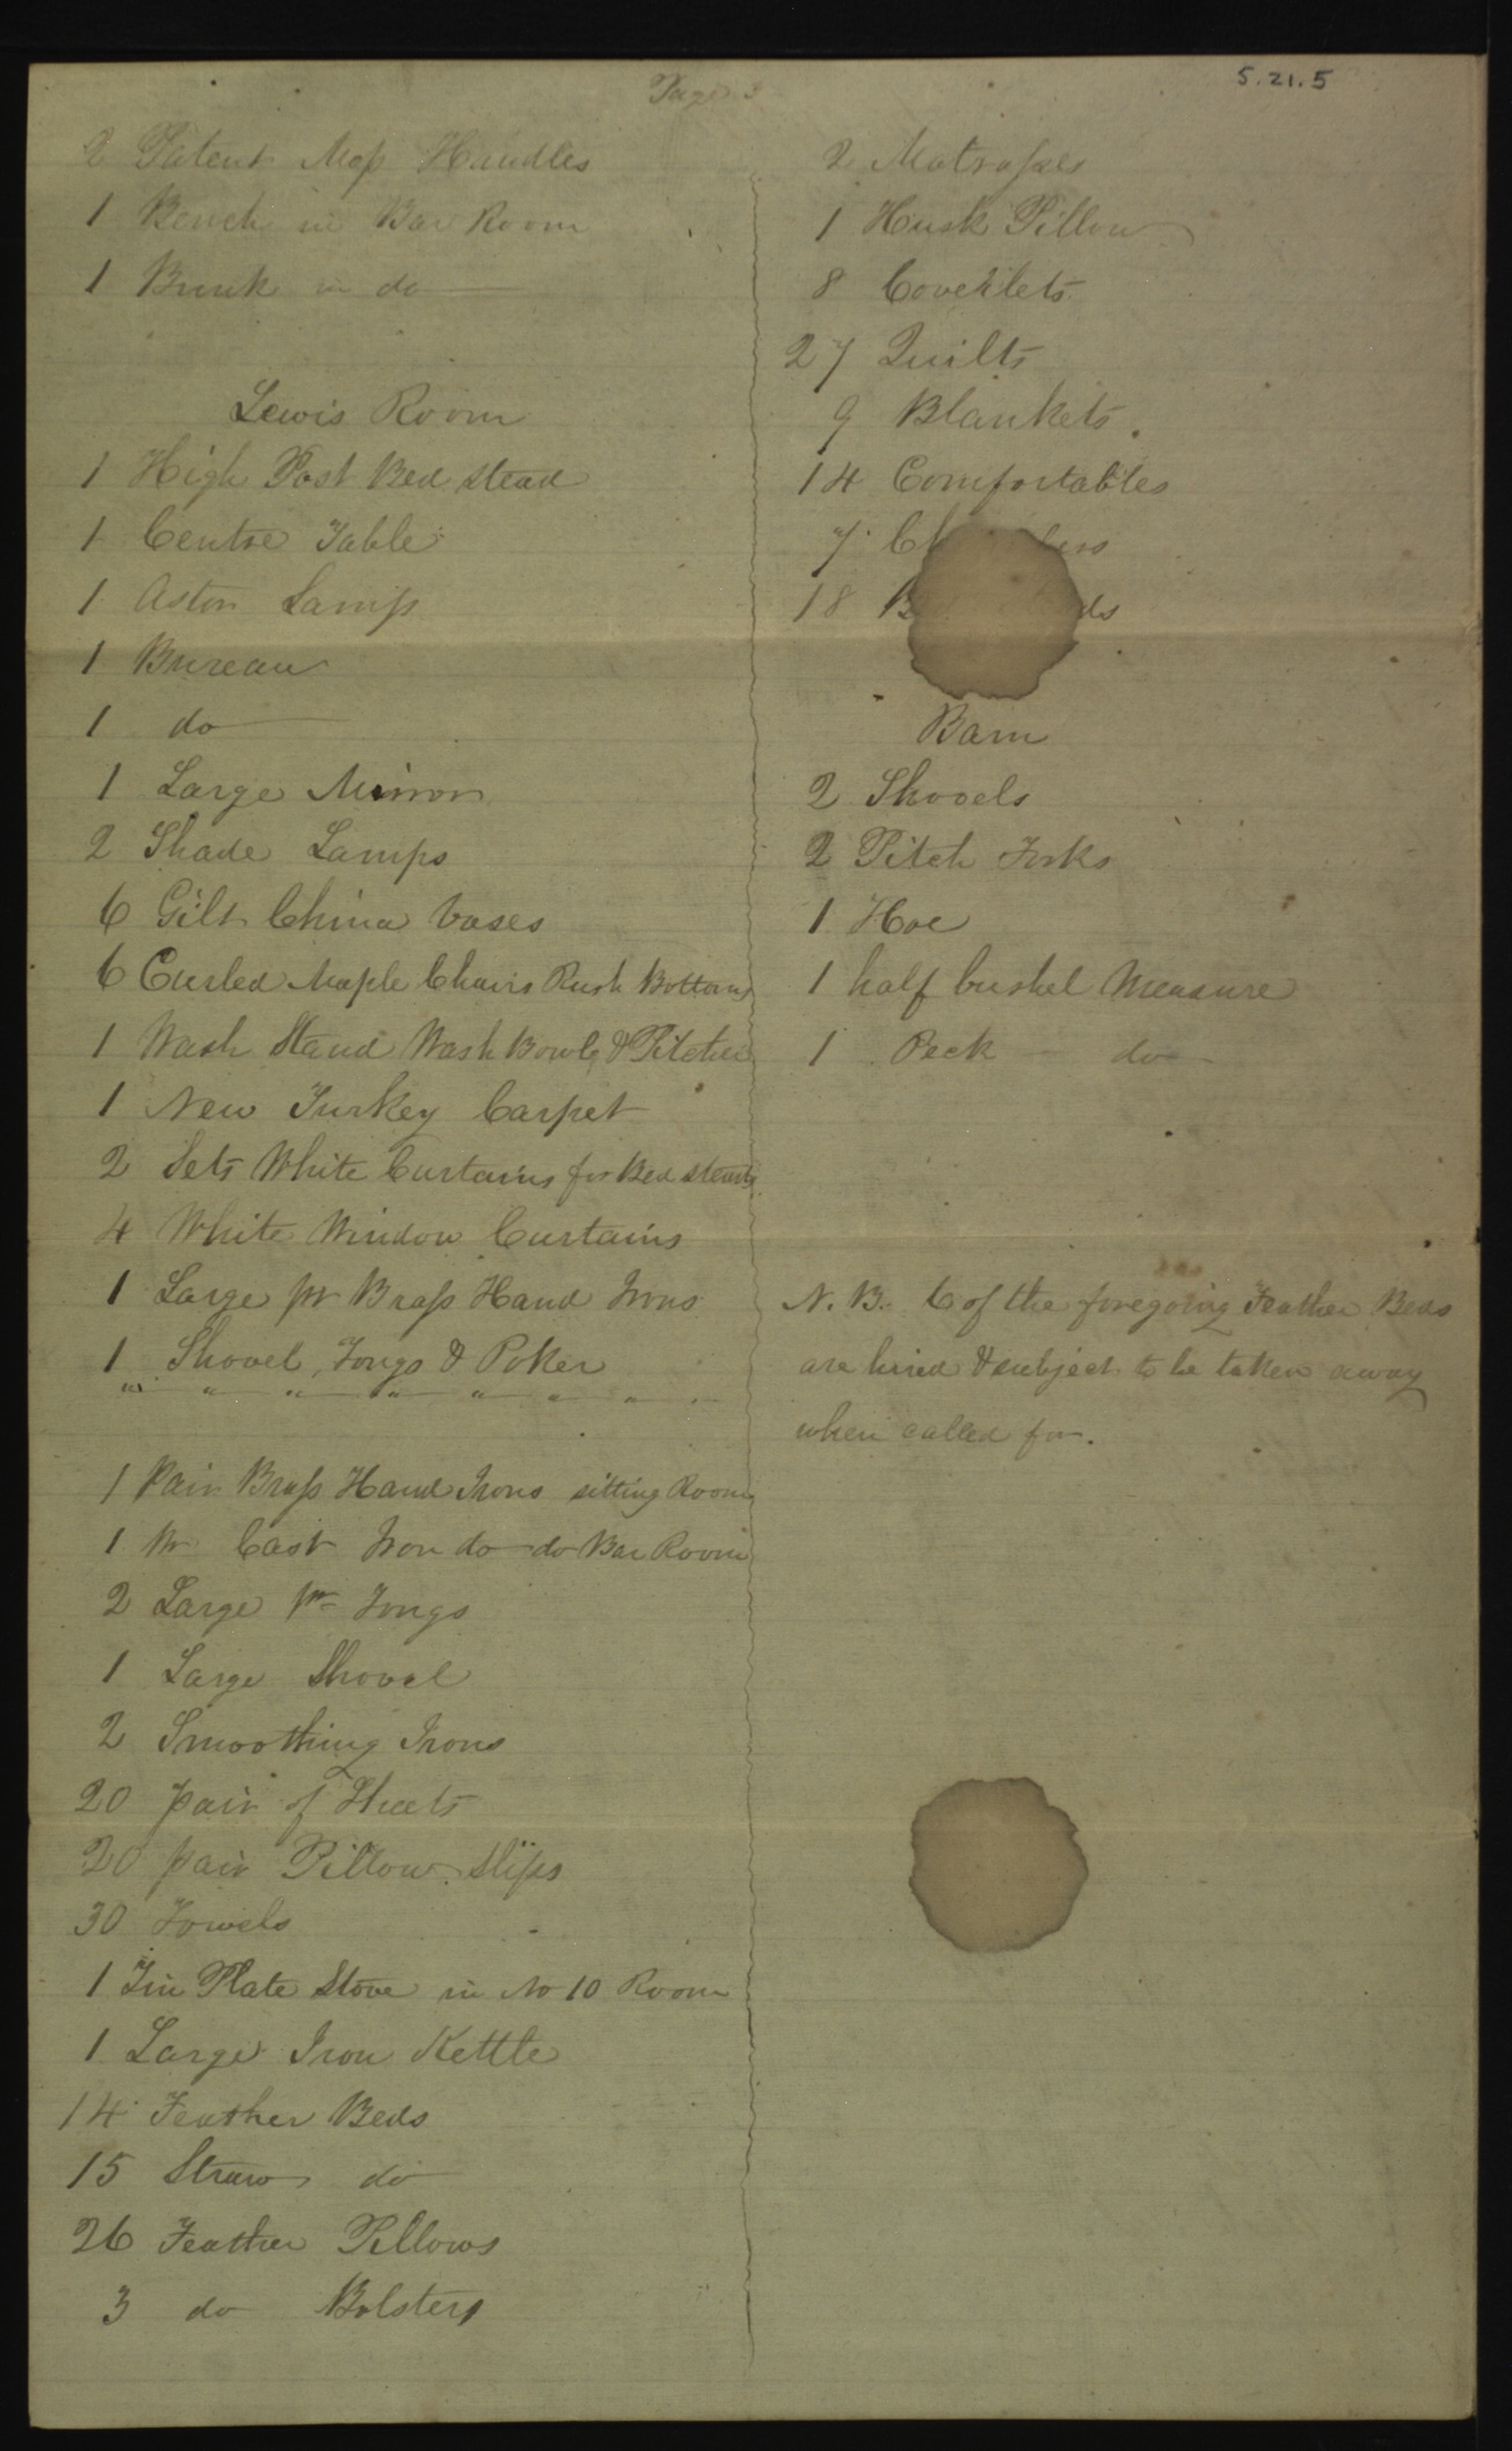 Page 3
5.21.5
2 Patent Mop Handles
1 Bench in Bar Room
1 Bunk in do
Lewis Room
1 High Post Bed Stead
1 Centre Table
1 Aston Lamp
1 Bureau
1 do
1 Large Mirror
2 Shade Lamps
6 Gilt China Vases
6 Curled Maple Chairs Rush Bottoms
1 Wash Stand Wash Bowl & Pitcher
1 New Turkey Carpet
2 Sets White Curtains for Bed steads
4 White Window Curtains
1 Large pr Brass Hand Irons
1 Shovel, Tongs & Poker
" " " " " " "
1 Pair Brass Hand Irons sitting Room
1 Pr Cast Iron do do Bar Room
2 Large pr Tongs
1 Large Shovel
2 Smoothing Irons
20 pair of Sheets
20 pair Pillow Slips
30 Towels
1 Tin Plate Stove in No 10 Room
1 Large Iron Kettle
14 Feather Beds
15 Straw do
26 Feather Pillows
3 do Bolsters
2 Matrasses
1 Husk Pillow
8 Coverlets
27 Quilts
9 Blankets.
14 Comfortables
7
18
Barn
2 Shovels
2 Pitch Forks
1 Hoe
1 half bushel Measure
1 Peck do
N.B. 6 of the foregoing Feather Beds
are hired & subject to be taken away
when called for.